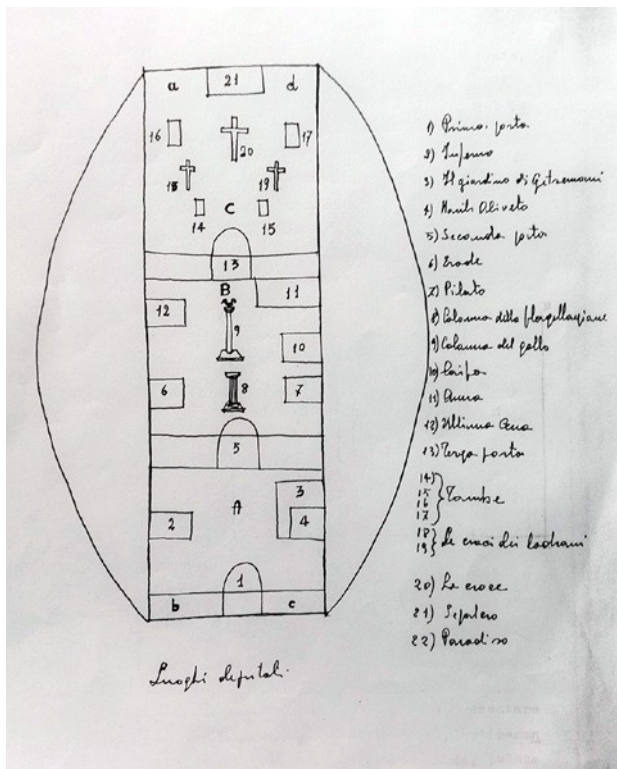 a 21 d
16 20 17
18 19
C
14 15
13
B
11
12
9
10
6 8 7
5
3
A
2 4
1
b c
Luoghi deputati.
1) Prima porta
2) Inferno
3) Il giardino di Getsemani
4) Monte Oliveto
5) Seconda porta
6) Erode
7) Pilato
8) Colonna della flagellazione
9) Colonna del gallo
10) Caifa
11) Anna
12) Ultima Cena
13) Terza porta
14)
15
16 Tombe
17
18
19 Le croci dei ladroni
20) La croce
21) Sepolcro
22) Paradiso